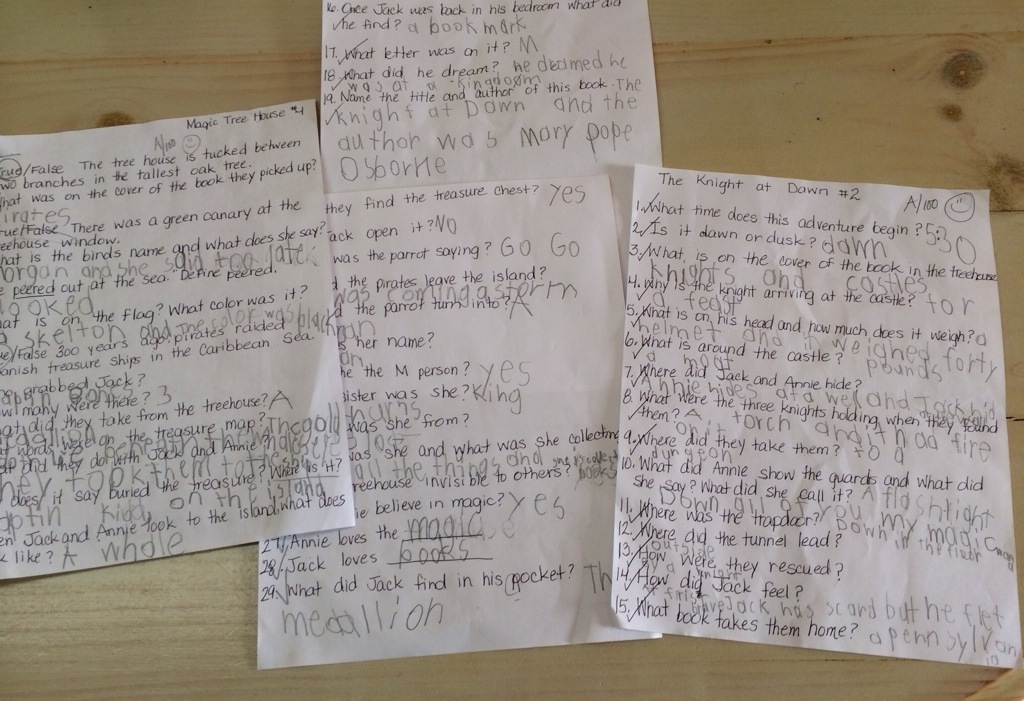 16. Once Jack was back in his bedroom what did
he find? a book mark
17. What letter was on it? M
18. What did he dream? he deamed he
was at a kingdoom
19. Name the title and author of this book. The
Knight at Dawn and the
author was Mary pope
Osborne
Magic Tree House #4
A/100
True/False The tree house is tucked between
two branches in the tallest oak tree.
What was on the cover of the book they picked up?
Pirates
True/False There was a green canary at the
treehouse window.
What is the birds name and what does she say?
morgan and she said too late
peered out at the sea. Define peered.
looked
What is on the flag? What color was it?
A skelton and The color was black
True/False 300 years ago pirates raided
Spanish treasure ships in the Caribbean Sea.
grabbed Jack?
How many were there? 3
What did they take from the treehouse? A
words were on the treasure map? The gold
did they do with Jack and Annie?
They took them to
does it say buried the treasure? Where is it?
Captin Kidd on the island
When Jack and Annie look to the island, what does
look like? A whale
they find the treasure chest? yes
Jack open it? NO
was the parrot saying? GO GO
the pirates leave the island?
was coming a storm
the parrot turn into? A
is her name?
the M person? yes
sister was she? King
Thurns
was she from?
was she and what was she collecting
all the things and books
treehouse invisible to others?
believe in magic? yes
27. Annie loves the magic
28. Jack loves books
29. What did Jack find in his pocket? Th
medallion
The Knight at Dawn #2
A/100
1. What time does this adventure begin? 5:30
2. Is it dawn or dusk? dawn
3. What is on the cover of the book in the treehouse
Knights and castles
4. Why is the knight arriving at the castle? for
a feast
5. What is on his head and how much does it weigh? a
helmet and it weighed forty
6. What is around the castle? pounds
a moat
7. Where did Jack and Annie hide?
Annie hides at a well and Jack hid
8. What were the three knights holding when they found
them? A torch and it had fire
on it
9. Where did they take them? to a
dungeon
10. What did Annie show the guards and what did
she say? What did she call it? A flashlight
Down all of you my magic
11. Where was the trapdoor? Down in the floor
12. Where did the tunnel lead?
outside
13. How were they rescued?
by a knight
14. How did Jack feel?
brave Jack has scard but he flet
15. What book takes them home? a pennsylvan